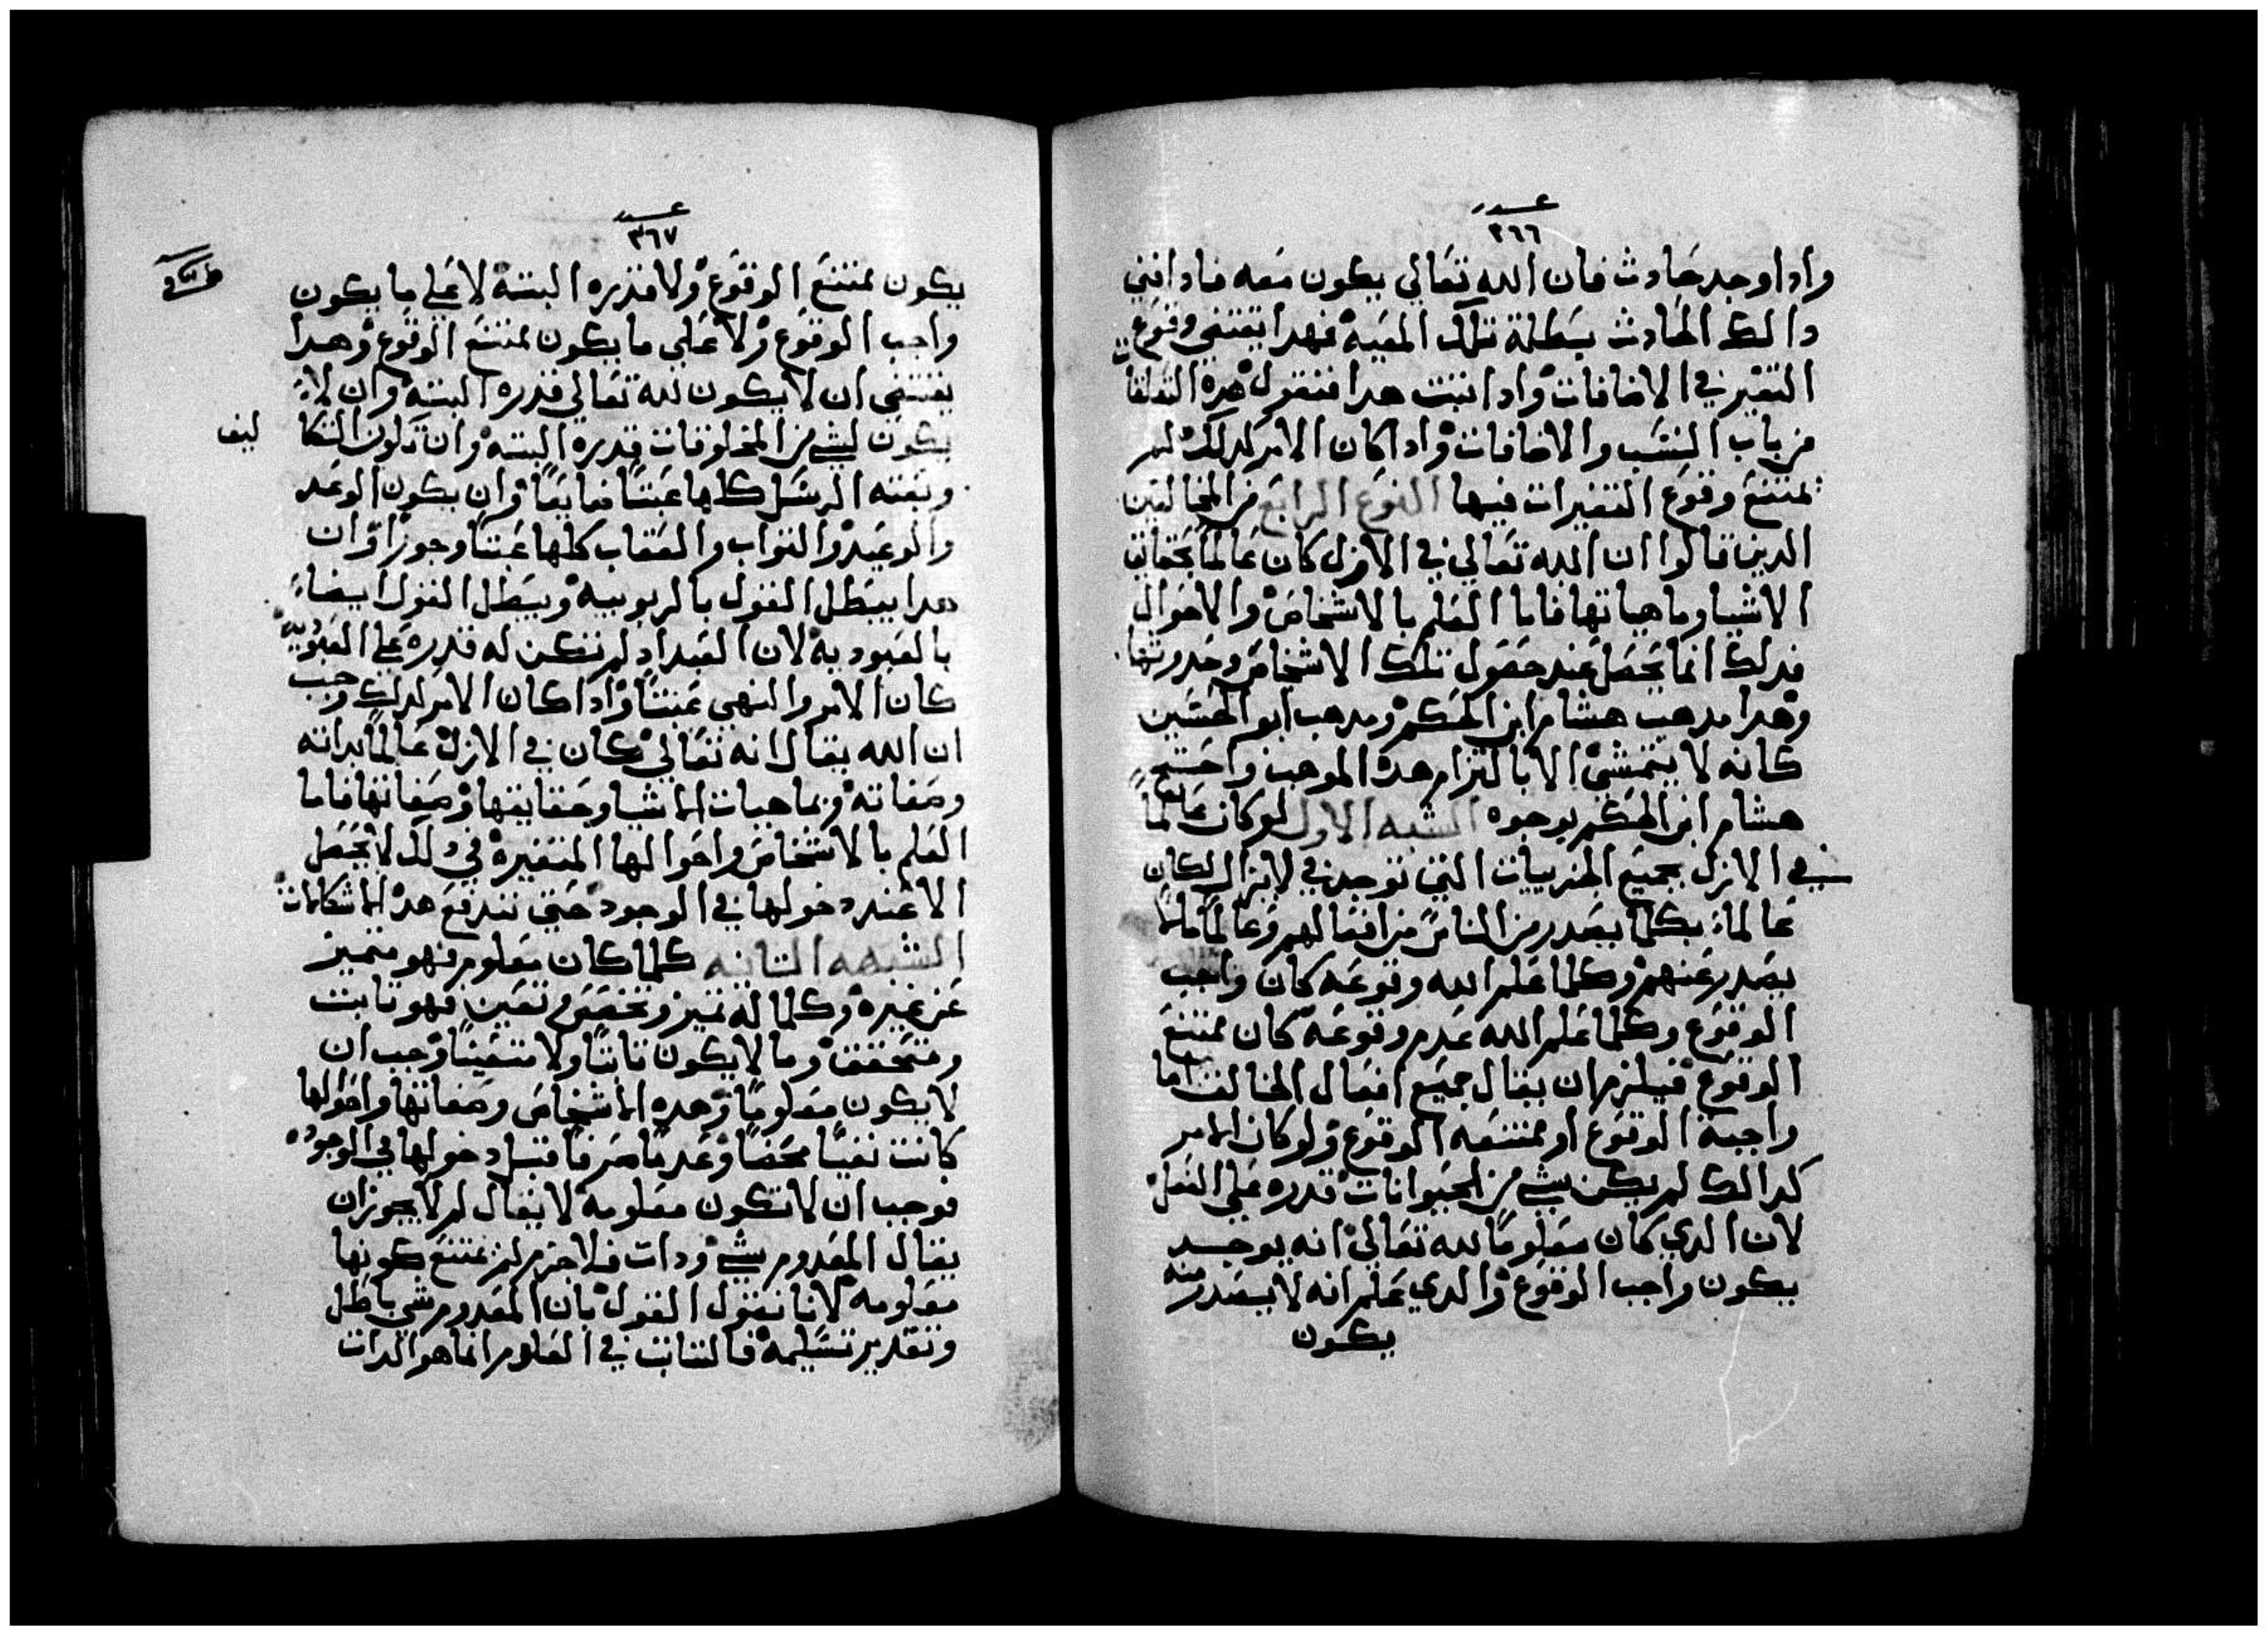 عدد
٣٦٦
وادا وجد حادث فان الله تعالي يكون معه فادا فني
دالك الحادث بطلة تلك المعية فهدا يقتضي وقوع
التغير في الاضافات وادا تبت هدا فنقول هده التعلقات
من باب النسب والاضافات وادا كان الامر كدلك لم
يمتنع وقوع التغيرات فيها النوع الرابع من المخالفين
الدين قالوا ان الله تعالي في الازل كان عالماً بحقايق
الاشيا وماهياتها فاما العلم بالاشخاص والاحوال
فدلك انما يحصل عند حصول تلك الاشخاص وحدوتها
وهدا مدهب هشام ابن الحكم ومدهب ابو الحسين
كانه لا يتمشي الا بالتزام هده الموهب واحتج
هشام ابن الحكم بوجوه الشبه الاول لو كان عالماً
في الازل بجميع الجزييات التي توجد في لا يزال لكان
عالماً بكلما يصدر من الناس من افعالهم وعالماً بما لا
يصدر عنهم وكلما علم الله وقوعه كان واجب
الوقوع وكلما علم الله عدم وقوعه كان ممتنع
الوقوع فيلزم ان يقال جميع افعال المخالفت اما
واجبة الوقوع او ممتنعه الوقوع ولو كان الامر
كدالك لم يكن لشي من الحيوانات قدره علي الفعل
لان الدي كان معلوماً لله تعالي انه يوجد
يكون واجب الوقوع والدي علم انه لا يصدر منه
يكون
عدد
٣٦٧
يكون ممتنع الوقوع ولا قدره البتة لا علي ما يكون
واجب الوقوع ولا علي ما يكون ممتنع الوقوع وهدا
يقتضي ان لا يكون لله تعالي قدره البتة وان لا
يكون لشي من المخلوقات قدره البتة وان تكون التكا ليف
وبعته الرسل كلها عبتاً ضايعاً وان يكون الوعد
والوعيد والتواب والعقاب كلها عبتاً وجوراً وان
هدا يبطل القول بالربوبية ويبطل القول ايضاً
بالعبودية لان العبد اد لم تكن له قدره علي العبودية
كان الامر والنهي عبتاً وادا كان الامر كدلك وجب
ان الله يقال انه تعالي كان في الازل عالماً بداته
وصفاته وبماهيات الاشيا وحقايقها وصفاتها فاما
العلم بالاشخاص واحوالها المتغيرة في دلك لا يحصل
الا عند دخولها في الوجود حتي تندفع هده الاشكالات
الشبهه التانيه كلما كان معلوم فهو متميز
عن غيره وكلما له تميز وتخصص وتعين فهو تابت
ومتحقق وما لا يكون تابتاً ولا متعيناً وجب ان
لا يكون معلوماً وهده الاشخاص وصفاتها واحوالها
كانت نفياً محضاً وعدماً صرفاً قبل دخولها في الوجود
فوجب ان لا تكون معلومة لا يقال لم لا يجوز ان
يقال المعدوم شي ودات فلا جزم لم يمتنع كونها
معلومه لانا نقول القول بان المعدوم شي باطل
وتقدير تسليمه فالتابت في العلوم انما هو الدات